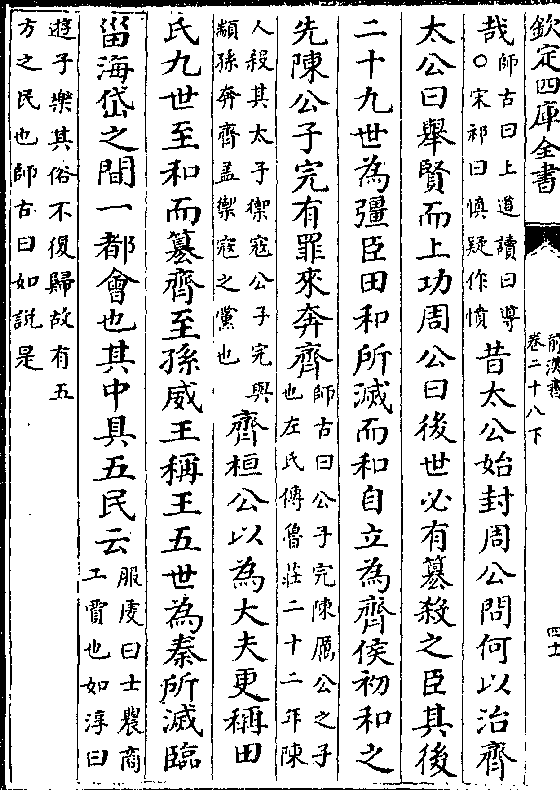 欽定四庫全書
前漢書
卷二十八下
四十
哉師古曰上道讀曰導
○宋祁曰慎疑作憤昔太公始封周公問何以治齊
太公曰舉賢而上功周公曰後世必有簒殺之臣其後
二十九世為彊臣田和所滅而和自立為齊侯初和之
先陳公子完有罪來奔齊師古曰公子完陳厲公之子
也左氏傳魯莊二十二年陳
人殺其太子禦寇公子完與
顓孫奔齊盖禦寇之黨也齊桓公以為大夫更稱田
氏九世至和而簒齊至孫威王稱王五世為秦所滅臨
甾海岱之間一都會也其中具五民云服虔曰士農商
工賈也如淳曰
遊子樂其俗不復歸故有五
方之民也師古曰如說是